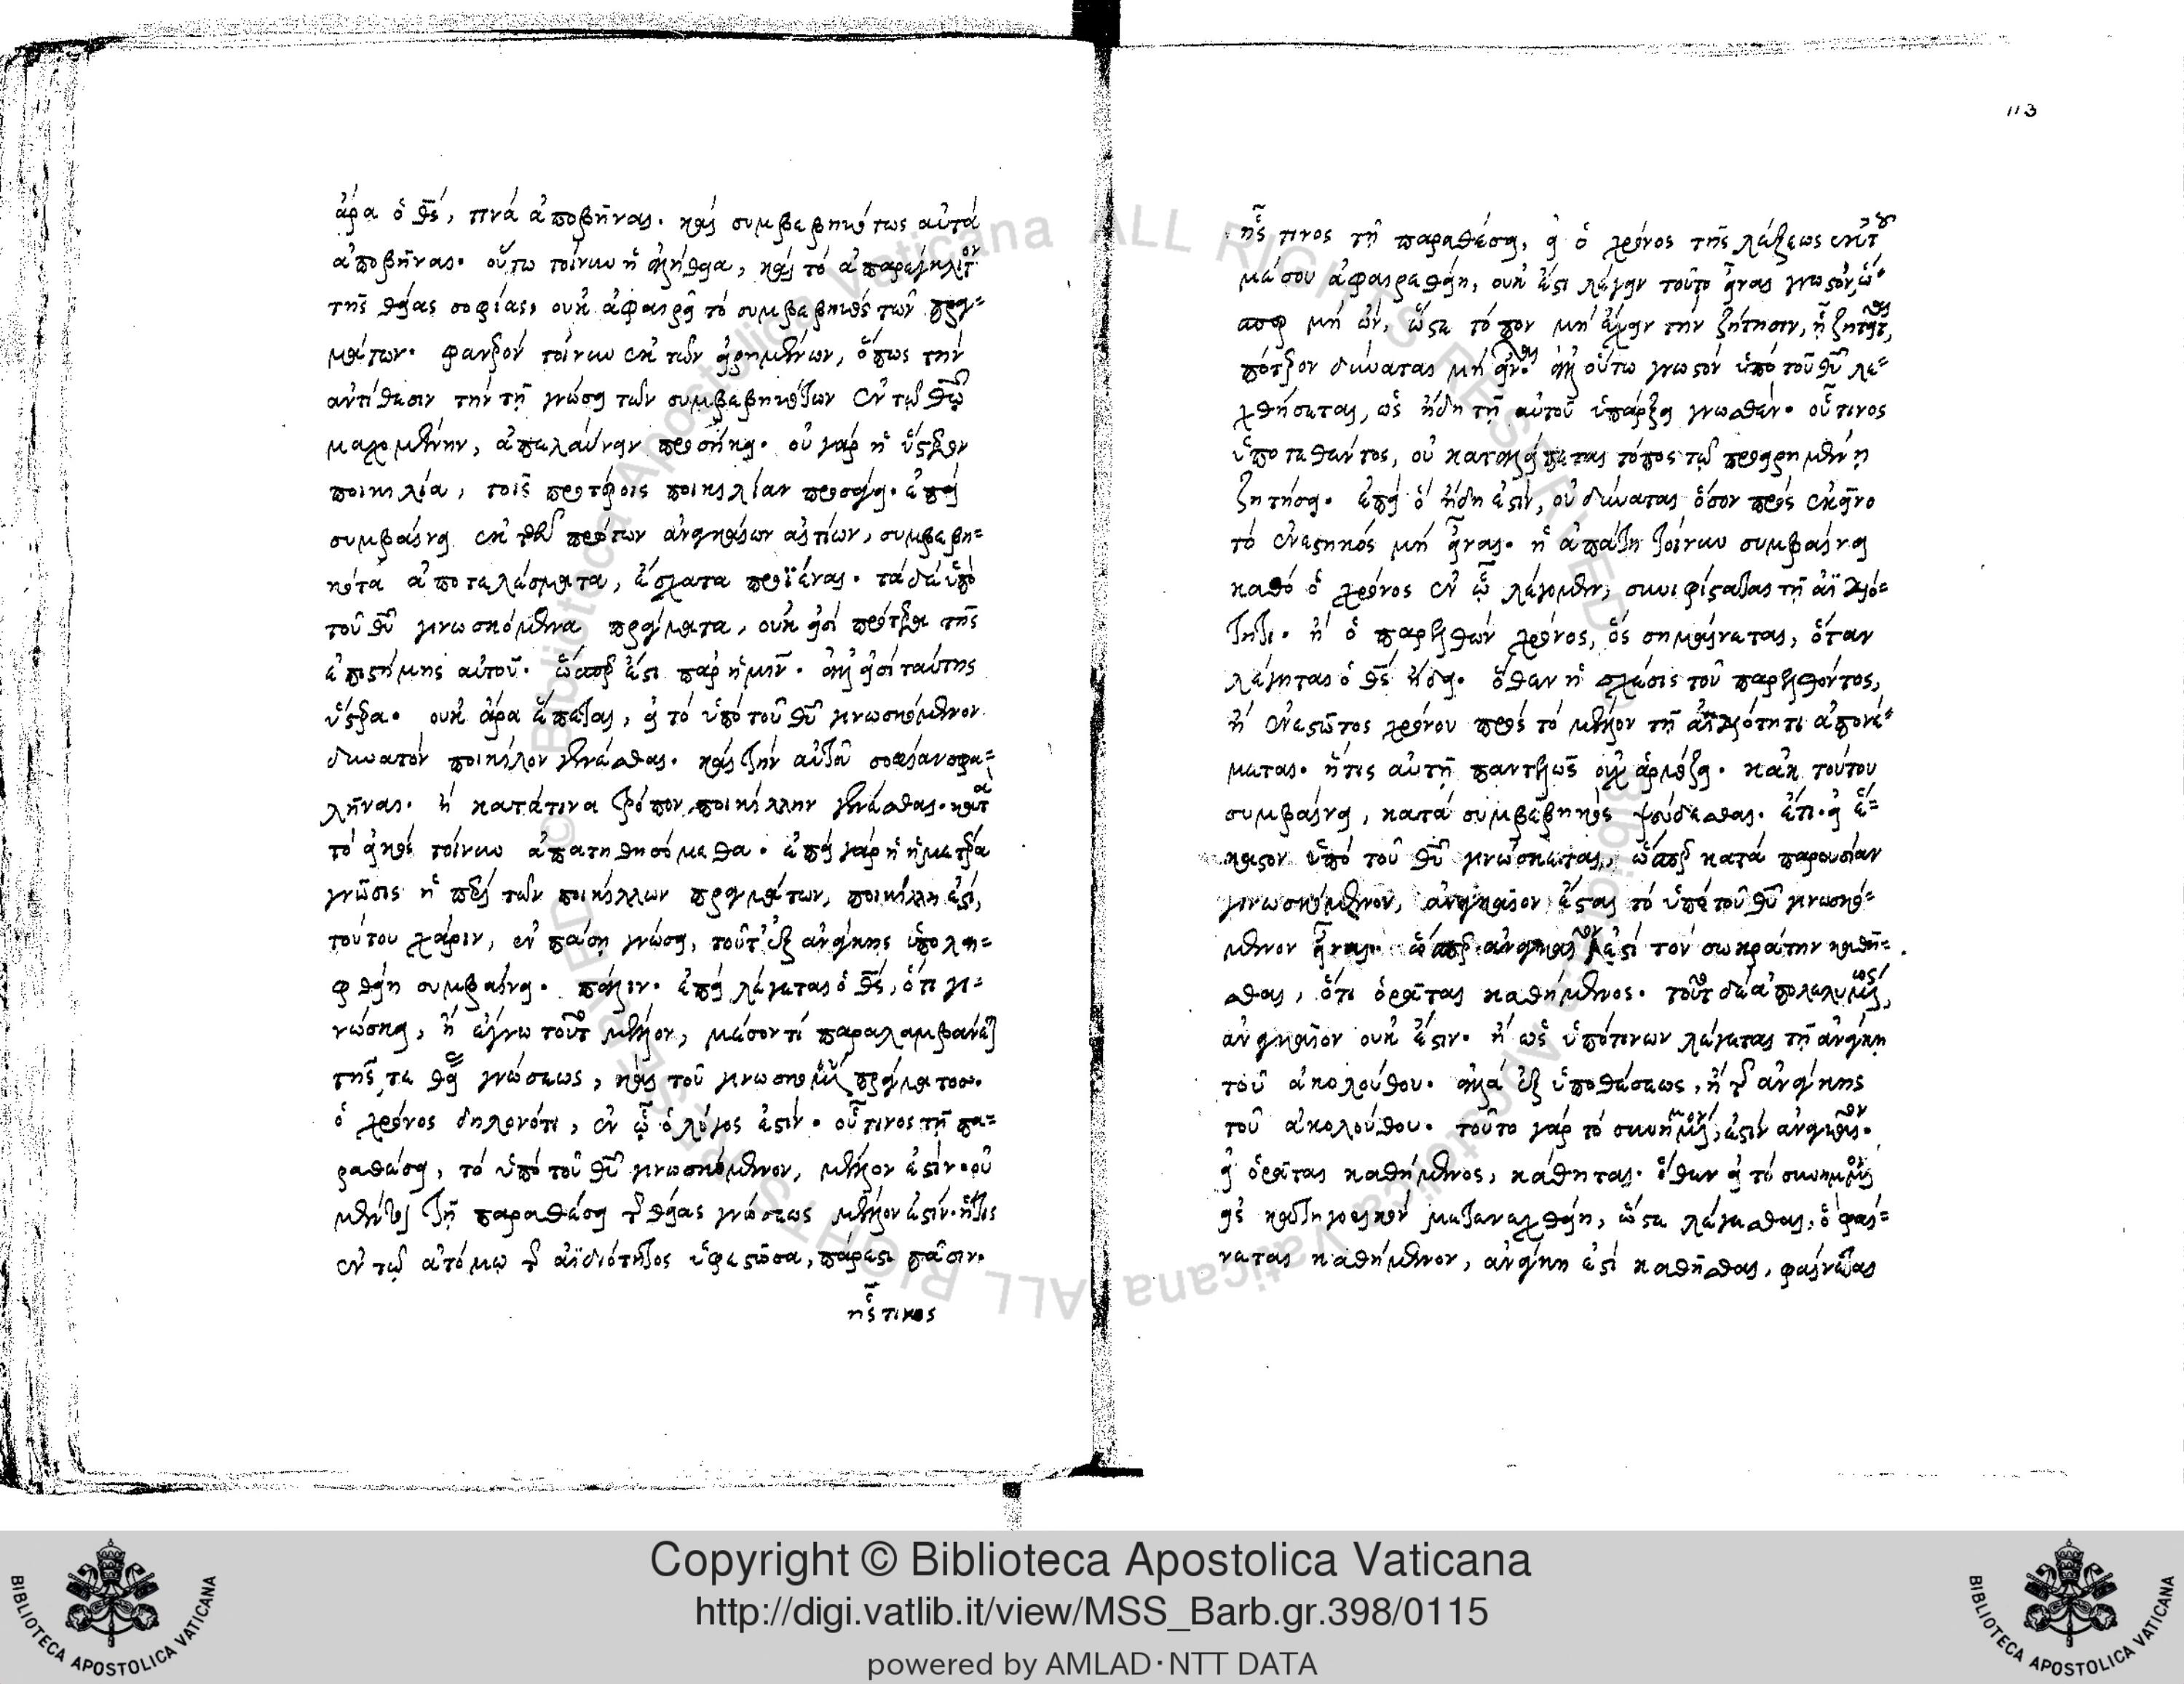 ἄρα ὁ θς, τινά ἀποβῆναι. καὶ συμβεβηκότως αὐτά
ἀποβῆναι. οὕτω τοίνυν ἡ ἀλήθεια, καὶ τό ἀπαρεγκλιτον
τῆς θείας σοφίας, οὐκ ἀφαιρεῖ τό συμβεβηκός τῶν πραγ=
μάτων. φανερόν τοίνυν ἐκ τῶν εἰρημένων, ὅπως τήν
ἀντίθεσιν τήν τῇ γνώσει τῶν συμβεβηκότων ἐν τῷ θῶ
μαχομένην, ἀπελαύνειν προσήκει. οὐ γάρ ἡ ὕστερον
ποικιλία, τοῖς προτέροις ποικιλίαν προσάγει. ἐπεί
συμβαίνει ἐκ τῶν πρώτων ἀναγκαίων αἰτίων, συμβεβη=
κότα ἀποτελέσματα, ἔσχατα προϊέναι. τά δέ ὑπό
τοῦ θῦ γινωσκόμενα πράγματα, οὐκ εἰσί πρότερα τῆς
ἐπιστήμης αὐτοῦ. ὥσπερ ἐστι παρ' ἡμῖν. ἀλλ' εἰσί ταύτης
ὕστερα. οὐκ ἄρα ἕπεται, εἰ τό ὑπό τοῦ θῦ γινωσκόμενον
δυνατόν ποικίλον γενέσθαι. καὶ τήν αὐτοῦ σοφίαν σφα=
λῆναι. ἤ κατά τινα τρόπον ποικίλλην γενέσθαι. κατά
τό εἰκός τοίνυν ἀπατηθησόμεθα. ἐπεί γάρ ἡ ἡμετέρα
γνῶσις ἡ περί τῶν ποικίλλων πραγμάτων, ποικίλλη ἐστί,
τούτου χάριν, ἐν πάσῃ γνώσει, τοῦτ' ἐξ ἀνάγκης ὑπολη=
φθῆν συμβαίνει. πάλιν. ἐπεί λέγεται ὁ θς, ὅτι γι=
νώσκει, ἤ ἔγνω τοῦτο μέλλον, μέσον τί παραλαμβάνεται
τῆς τε θείας γνώσεως, καὶ τοῦ γινωσκομένου πράγματος.
ὁ χρόνος δηλονότι, ἐν ᾧ ὁ λόγος ἐστίν. οὗτινος τῇ πα=
ραθέσει, τό ὑπό τοῦ θῦ γινωσκόμενον, μέλλον ἐστίν. οὐ
μέντοι τῇ παραθέσει τῆς θείας γνώσεως μέλλον ἐστίν. ἥτις
ἐν τῷ ἀτόμῳ τῆς ἀϊδιότητος ὑφεστῶσα, πάρεστι πᾶσιν.
ἧς τινος
113
ἧς τινος τῇ παραθέσει, εἰ ὁ χρόνος τῆς λέξεως ἐκ τοῦ
μέσου ἀφαιρεθείη, οὐκ ἔστι λέγειν τοῦτο εἶναι γνωστόν, ὡ=
σπερ μή ὄν, ὥστε τόπον μή ἔχειν τήν ζήτησιν, ᾗ ζητεῖται,
πότερον δύναται μή εἶναι. ἀλλ' οὕτω γνωστόν ὑπό τοῦ θῦ λε=
χθήσεται, ὡς ἤδη τῇ αὐτοῦ ὑπάρξει γνωσθέν. οὗτινος
ὑποτεθέντος, οὐ καταλείπεται τόπος τῷ προειρημένῃ
ζητήσει. ἐπεί ὅ ἤδη ἐστίν, οὐ δύναται ὅσον πρός ἐκεῖνο
τό ἐνεστηκός μή εἶναι. ἡ ἀπάτη τοίνυν συμβαίνει
καθό ὁ χρόνος ἐν ᾧ λέγομεν, συνυφίσταται τῇ ἀϊδιό=
τητι. ἤ ὁ παρελθών χρόνος, ὅς σημαίνεται, ὅταν
λέγηται ὁ θς ᾔδει. ὅθεν ἡ σχέσις τοῦ παρελθόντος,
ἤ ἐνεστῶτος χρόνου πρός τό μέλλον τῇ ἀϊδιότητι ἀπονέ=
μεται. ἥτις αὐτῇ παντελῶς οὐχ ἁρμόζει. κἀκ τούτου
συμβαίνει, κατά συμβεβηκός ψεύδεσθαι. ἔτι. εἰ ἕ=
καστον ὑπό τοῦ θῦ γινώσκεται, ὥσπερ κατά παρουσίαν
γινωσκόμενον, ἀναγκαῖον ἔσται τό ὑπό τοῦ θῦ γινωσκό=
μενον εἶναι. ὥσπερ ἀναγκαῖόν ἐστι τόν σωκράτην καθῆ=
σθαι, ὅτι ὁρᾶται καθήμενος. τοῦτο δέ ἀπολελυμένως,
ἀναγκαῖον οὐκ ἔστιν. ἤ ὡς ὑπό τινων λέγεται τῇ ἀνάγκῃ
τοῦ ἀκολούθου. ἀλλά ἐξ ὑποθέσεως, ἤ τῆς ἀνάγκης
τοῦ ἀκολούθου. τοῦτο γάρ τό συνημμένον, ἐστίν ἀναγκαῖον.
εἰ ὁρᾶται καθήμενος, κάθηται. ὅθεν εἰ τό συνημμένον
εἰς κατηγορικόν μετενεχθείη, ὥστε λέγεσθαι, ὅ φαί=
νεται καθήμενον, ἀνάγκη ἐστί καθῆσθαι, φαίνεται
Copyright © Biblioteca Apostolica Vaticana
http://digi.vatlib.it/view/MSS_Barb.gr.398/0115
powered by AMLAD·NTT DATA